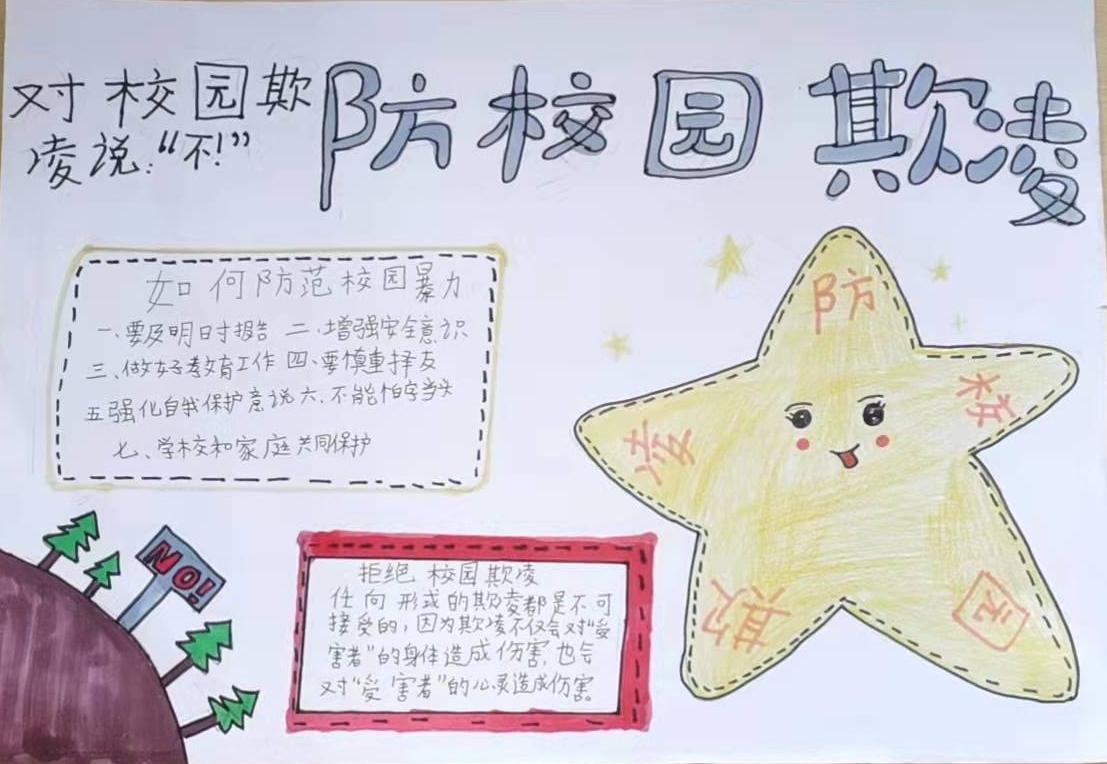 对校园欺
凌说:“不!”
防校园欺凌
如何防范校园暴力
一、要及明时报告 二、增强安全意识
三、做好教育工作 四、要慎重择友
五强化自我保护意识 六、不能怕字当头
七、学校和家庭共同保护
防
校
园
欺
凌
NO!
拒绝校园欺凌
任向形式的欺凌都是不可
接受的,因为欺凌不仅会对“受
害者”的身体造成伤害,也会
对“受害者”的心灵造成伤害。